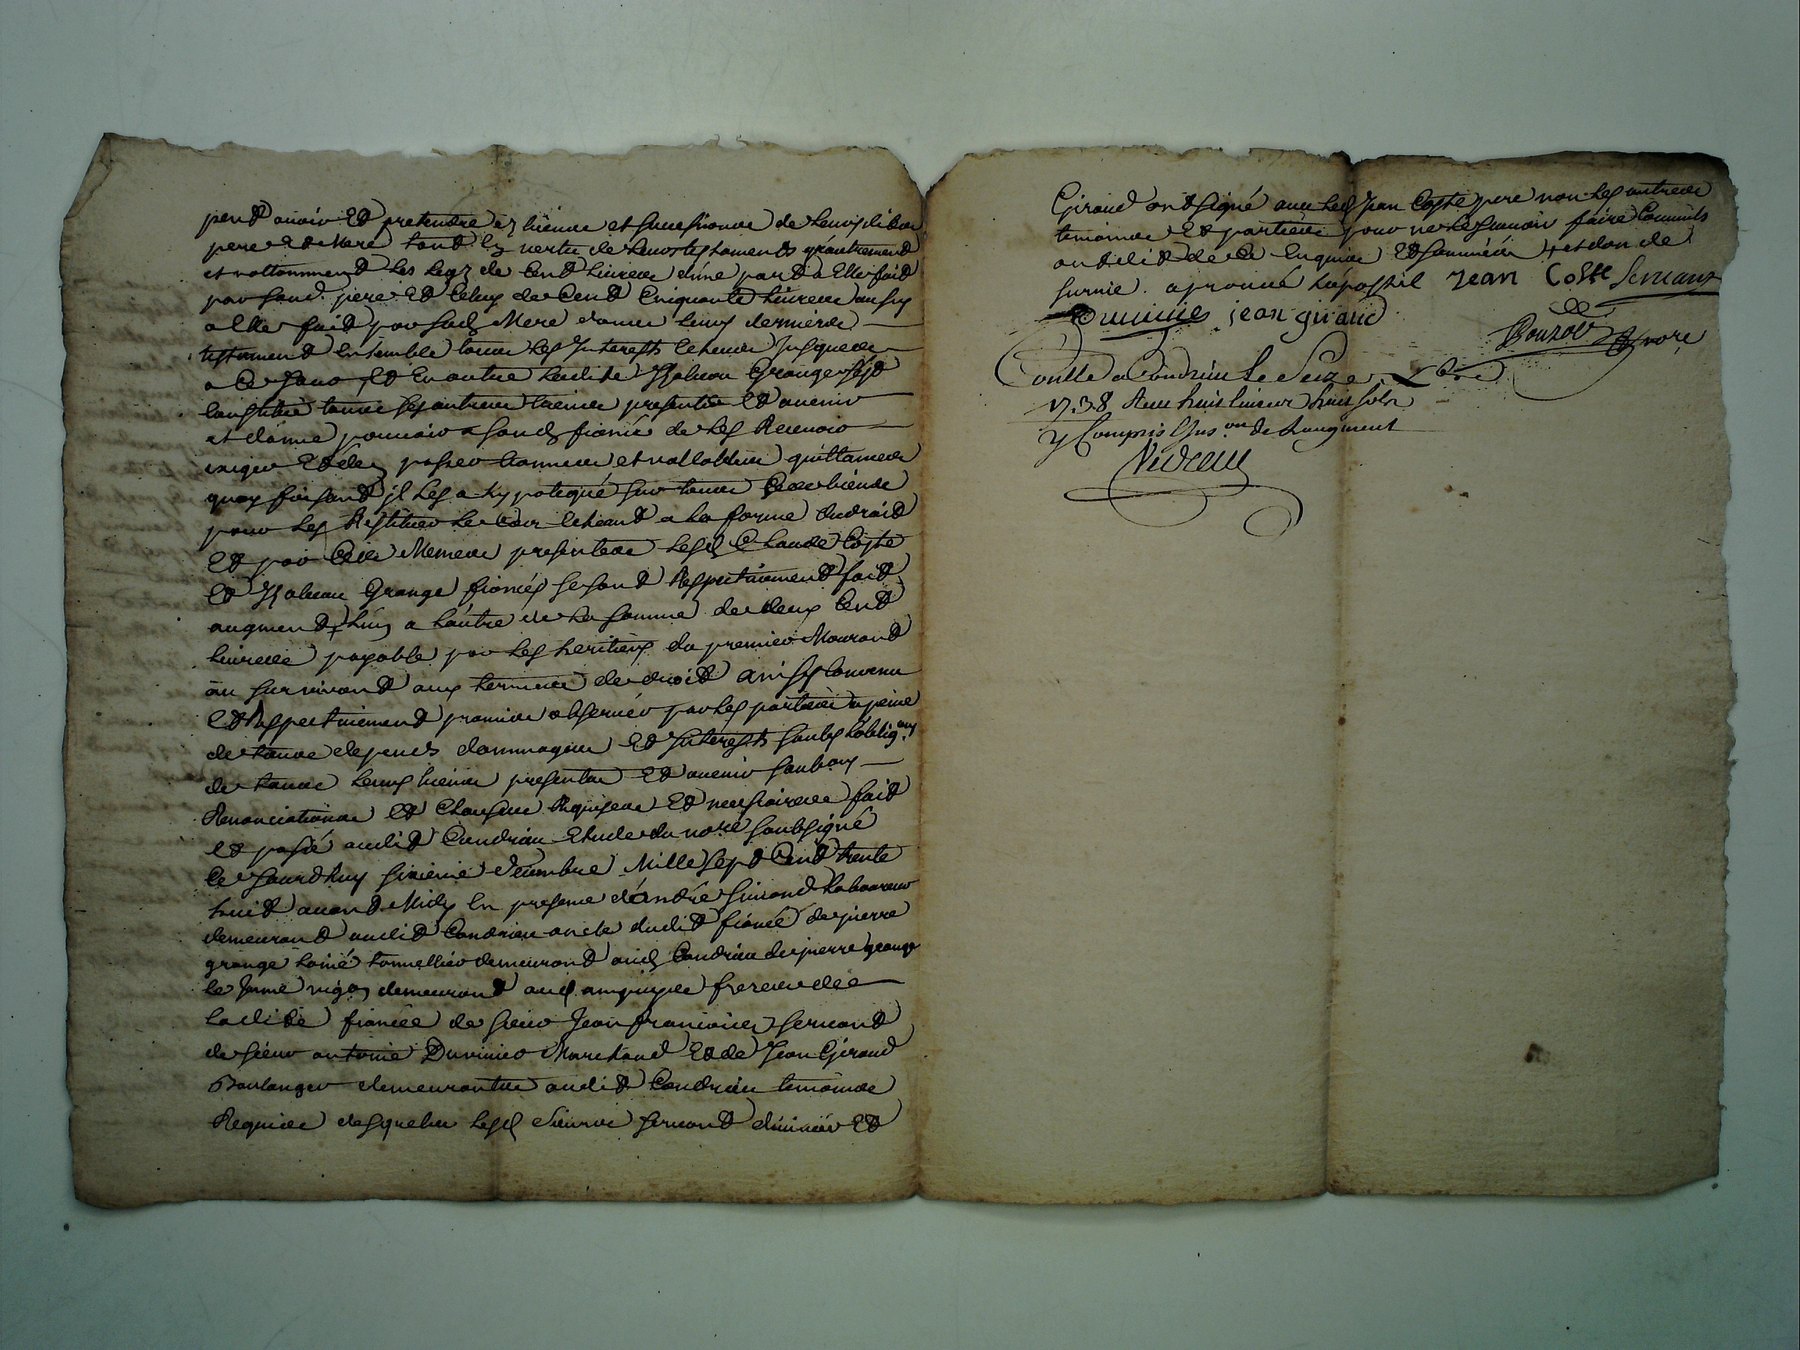 peut avoir et pretendre ez biens et successions de leursdits
pere et mere tant en vertu de leurs testaments qu'autrement
et nottamment les legz de cent livres d'une part a elle fait
par sond. pere et celuy de cent cinquante livres aussy
a elle fait par sad. mere dans leurs derniers
testament ensemble tous les interests echeus jusques
a ce jour, et en outre ladite Izabeau Grange s'est
constitué tous ses autres biens presents et avenir
et donne pouvoir a sond. fiancé de les recevoir
exiger et d'en passer bonnes et vallables quittances
quoy faisant il les a hypotequé sur tous ses biens
pour les restituer le cas echeant a la forme du droit
et par ces memes presentes lesd. Claude Coste
et Izabeau Grange fiancés se sont respectivement fait
augment l'un a l'autre de la somme de deux cent
livres payable par les heritiers du premier mourant
au survivant aux termes de droit ainsy convenu
et respectivement promis observer par les parties a peine
de tous depends dommages et interests soubs l'oblig.on
de tous leurs biens presents et avenir soubz
renonciations et clauses requises et necessaires fait
et passé audit Condrieu etude du no.re soubsigné
ce jourdhuy sixieme decembre mille sept cent trente
huit avant midy en presence d'andré Simond laboureur
demeurant audit Condrieu oncle dudit fiancé de pierre
grange l'ainé tonnellier demeurant aud. Condrieu de pierre grange
le jeune demeurant aud. freres de
ladite fiancée de sieur Jean francois Servant
de sieur antoine Duvivier marchand et de Jean Giraud
Boulanger demeurantes audit Condrieu temoins
requis desquelles lesd. sieurs servant duvivier et
Giraud ont signé avec led. Jean Coste pere non les autres
temoins et parties pour ne le scavoir faire comme ils
ont dit de ce enquis et sommés
survie. aprouvé l'apostil Jean Coste Servant
Duvivier jean giraud
Bouzol no.re
Con.llé a Condrieu le seize x.bre
1738 Receu huit livres huit sols
y compris l'ins.on de l'augment